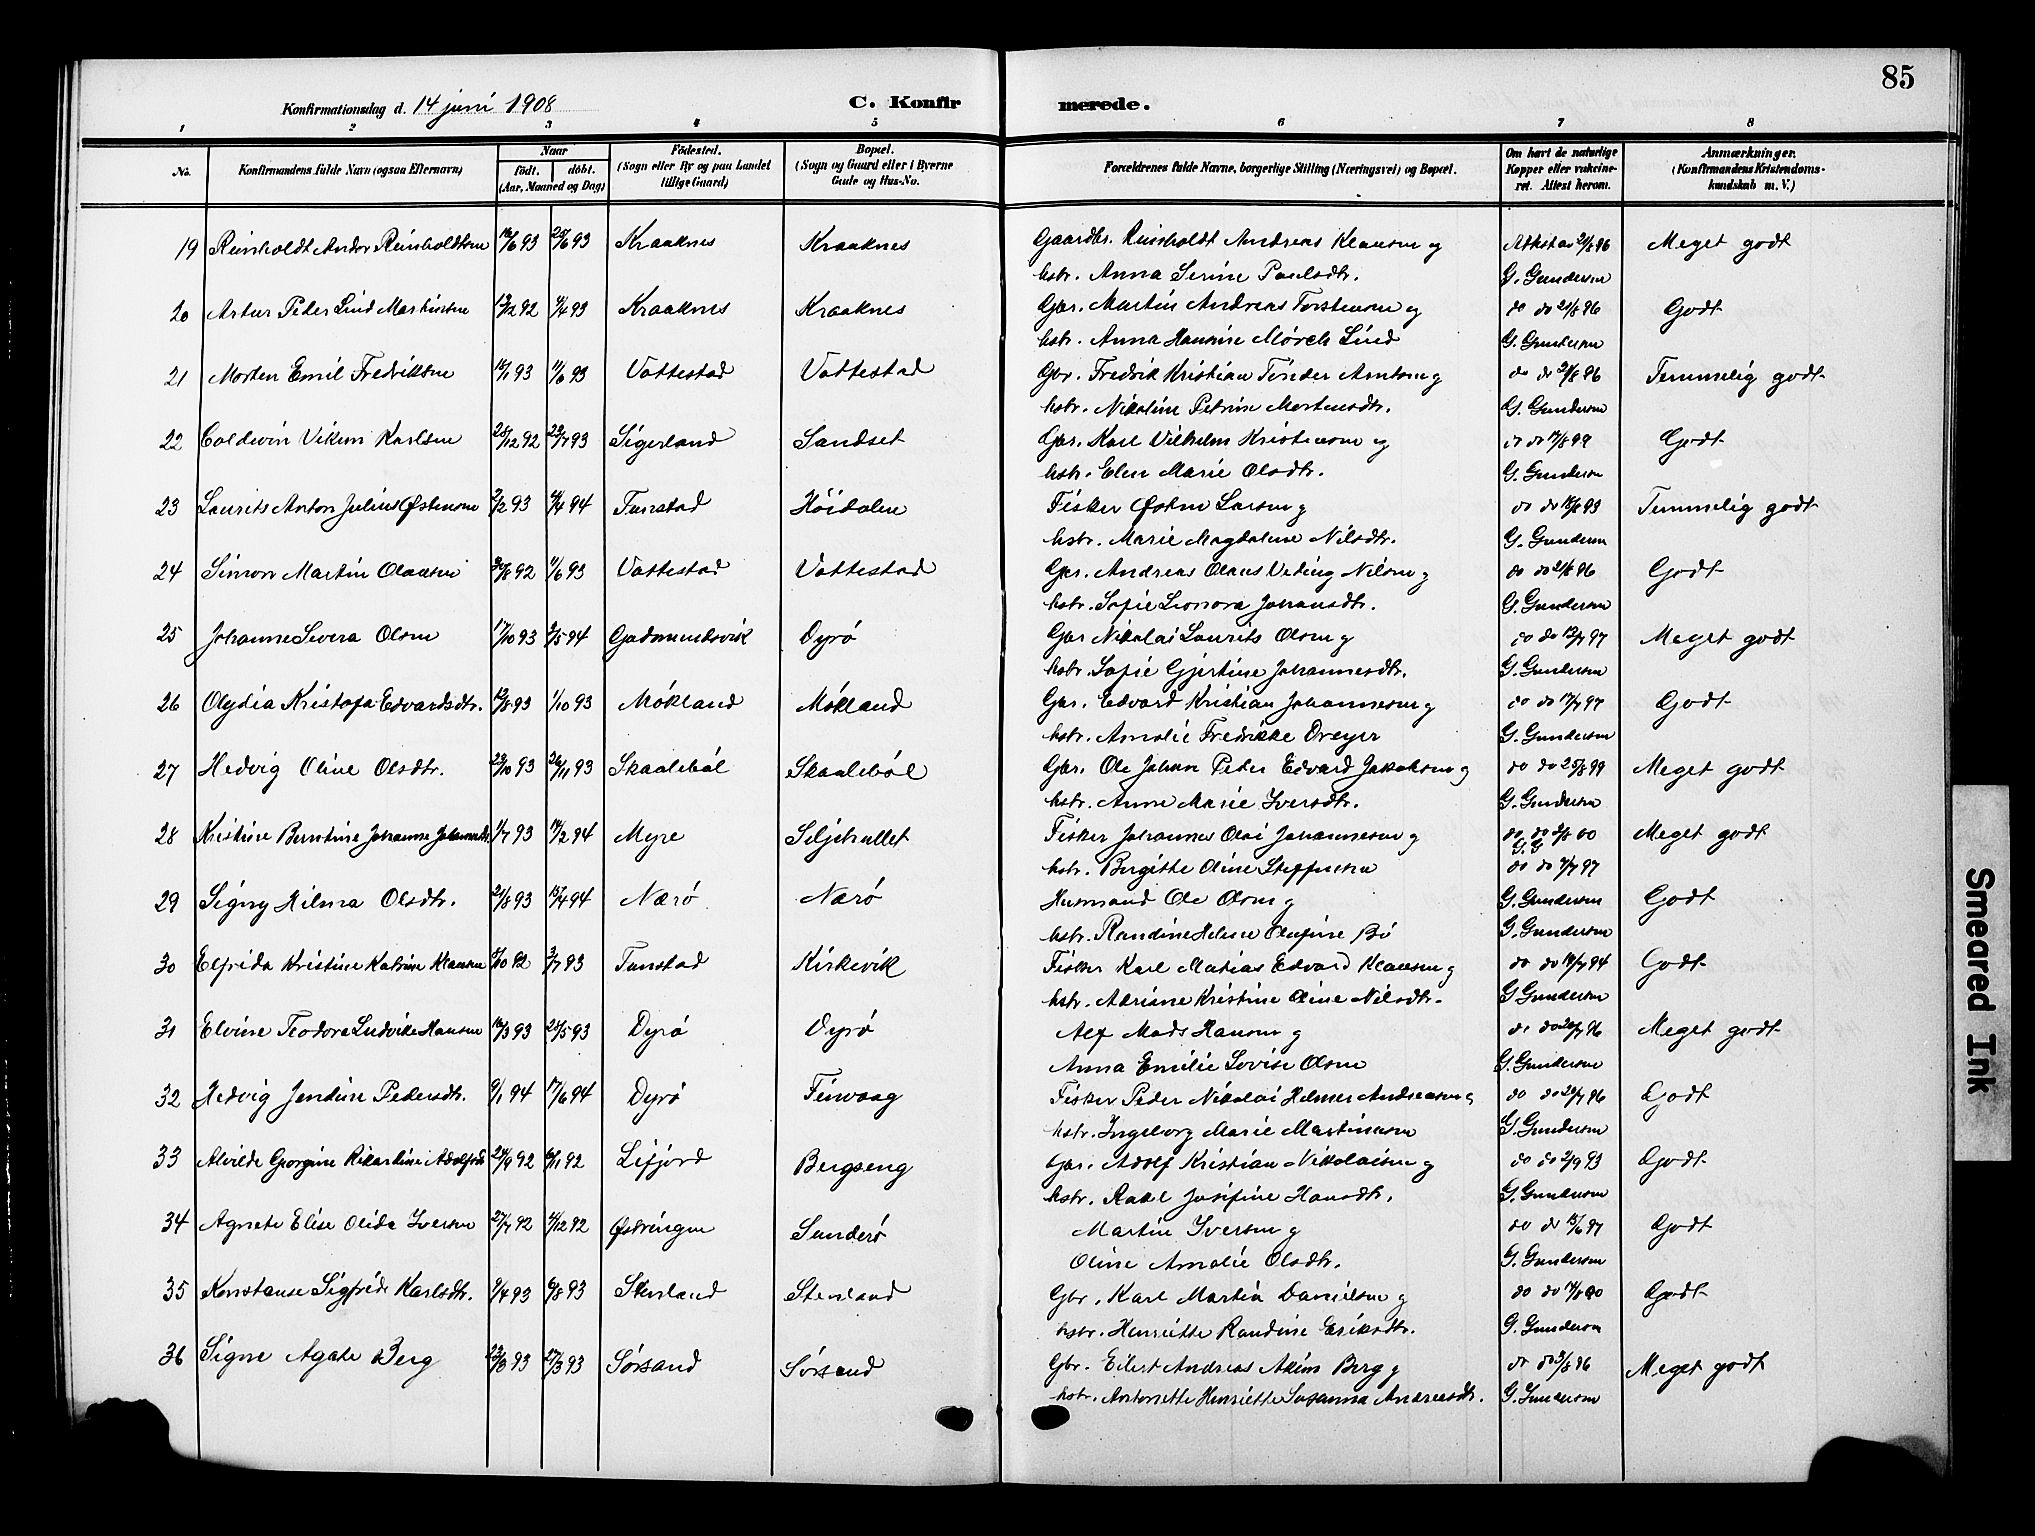 85
Konfirmationsdag d. 14 juni 1908
C. Konfirmerede.
1 2 3 4 5 6 7 8
No. Konfirmandens fulde Navn (ogsaa Efternavn) Naar født. døbt. (Aar, Maaned og Dag) Fødested. (Sogn eller By og paa Landet tillige Gaard) Bopæl. (Sogn og Gaard eller i Byerne Gade og Hus-No. Forældrenes fulde Navne, borgerlige Stilling (Næringsvei) og Bopæl. Om havt de naturlige Kopper eller vaksineret. Attest herom. Anmærkninger. (Konfirmandens Kristendomskundskab m. V.)
19 Reinholdt Andor Reinholdtsen 16/6 93 25/6 93 Kraaknes Kraaknes Gaardbr. Reinholdt Andreas Klausen og Attest av 21/8 96 Meget godt
hstr. Anna Serine Paulsdtr. G. Gundersen
20 Artur Peder Lind Martinsen 13/12 92 4/4 93 Kraaknes Kraaknes Gbr. Martin Andreas Torstensen og do do 21/8 96 Godt
hstr. Anna Hansine Mørch Lind G. Gundersen
21 Morten Emil Fredriksen 16/1 93 11/6 93 Vottestad Vottestad Gbr. Fredrik Kristian Tønder Arntsen og do do 21/8 96 Temmelig godt
hstr. Nikoline Petrine Mortensdtr. G. Gundersen
22 Coldevin Vikum Karlsen 28/12 92 23/7 93 Sigerland Sandset Gbr. Karl Vilhelm Kristensen og do do 17/8 99 Godt
hstr. Elen Marie Olsdtr. G. Gundersen
23 Laurits Anton Julius Østensen 2/2 93 4/4 94 Tunstad Höidalen Fisker Østen Larsen og do do 18/8 93 Temmelig godt
hstr. Marie Magdalene Nilsdtr. G. Gundersen
24 Simon Martin Olausen 30/8 92 11/6 93 Vottestad Vottestad Gbr. Andreas Olaus Veding Nilsen og do do 21/8 96 Godt
hstr. Sofie Leonora Johansdtr. G. Gundersen
25 Johanne Sivera Olsen 17/10 93 3/5 94 Gudmundsvik Dyrø Gbr Nikolai Laurits Olsen og do do 13/7 97 Meget godt
hstr. Sofie Gjertine Johannesdtr. G. Gundersen
26 Olydia Kristofa Edvardsdtr. 12/8 93 1/10 93 Møkland Møkland Gbr. Edvard Kristian Johannesen og do do 17/7 97 Godt
hstr. Amalie Fredrikke Dreyer G. Gundersen
27 Hedvig Oline Olsdtr. 23/10 93 26/11 93 Skaalebøl Skaalebøl Gbr. Ole Johan Peder Edvard Jakobsen og do do 25/8 99 Meget godt
hstr. Anne Marie Iversdtr. G. Gundersen
28 Kristine Berntine Johanne Johannesdtr. 1/7 93 14/2 94 Myre Seljehullet Fisker Johannes Olai Johannesen og do do 2/8 00 Meget godt
G. G
hstr. Birgitte Oline Steffensen do do 7/7 97
29 Signy Hilma Olsdtr. 21/8 93 15/4 94 Nærø Nærø Husmand Ole Olsen og G. Gundersen Godt
hstr. Randine Helene Olufine Bö G. Gundersen
30 Elfrida Kristine Katrine Klausen 5/10 92 2/7 93 Tunstad Kirkevik Fisker Karl Matias Edvard Klausen og do do 19/7 94 Godt
hstr. Adriane Kristine Oline Nilsdtr. G. Gundersen
31 Elvine Teodora Ludvikke Hansen 16/3 93 25/5 93 Dyrø Dyrø Alf Mads Hansen og do do 20/7 96 Meget godt
Anna Emilie Lovise Olsen G. Gundersen
32 Hedvig Jendine Pedersdtr. 9/1 94 17/6 94 Dyrø Finvaag Fisker Peder Nikolai Helmer Andreasen og do do 20/7 96 Godt
hstr. Ingeborg Marie Martinsen G. Gundersen
33 Alvilde Georgine Rikartine Adolfsdtr 24/9 92 6/11 92 Lifjord Bergseng Gbr. Adolf Kristian Nikolaisen og do do 2/9 93 Godt
hstr. Rakel Josefine Hansdtr. G. Gundersen
34 Agnete Elise Olida Iversen 27/7 92 4/12 92 Østringen Sunderø Martin Iversen og do do 15/6 97 Godt
Oline Amalie Olsdtr. G. Gundersen
35 Konstanse Sigfride Karlsdtr. 9/4 93 6/8 93 Stenland Stenland Gbr. Karl Martin Danielsen og do do 14/8 00 Godt
hstr. Henriette Randine Eriksdtr. G. Gundersen
36 Signe Agate Berg 23/3 93 27/3 93 Sørsand Sørsand Gbr. Eilert Andreas Akim Berg og do do 3/8 96 Meget godt
hstr. Antonette Henriette Susanna Andreasdtr. G. Gundersen
Smeared Ink